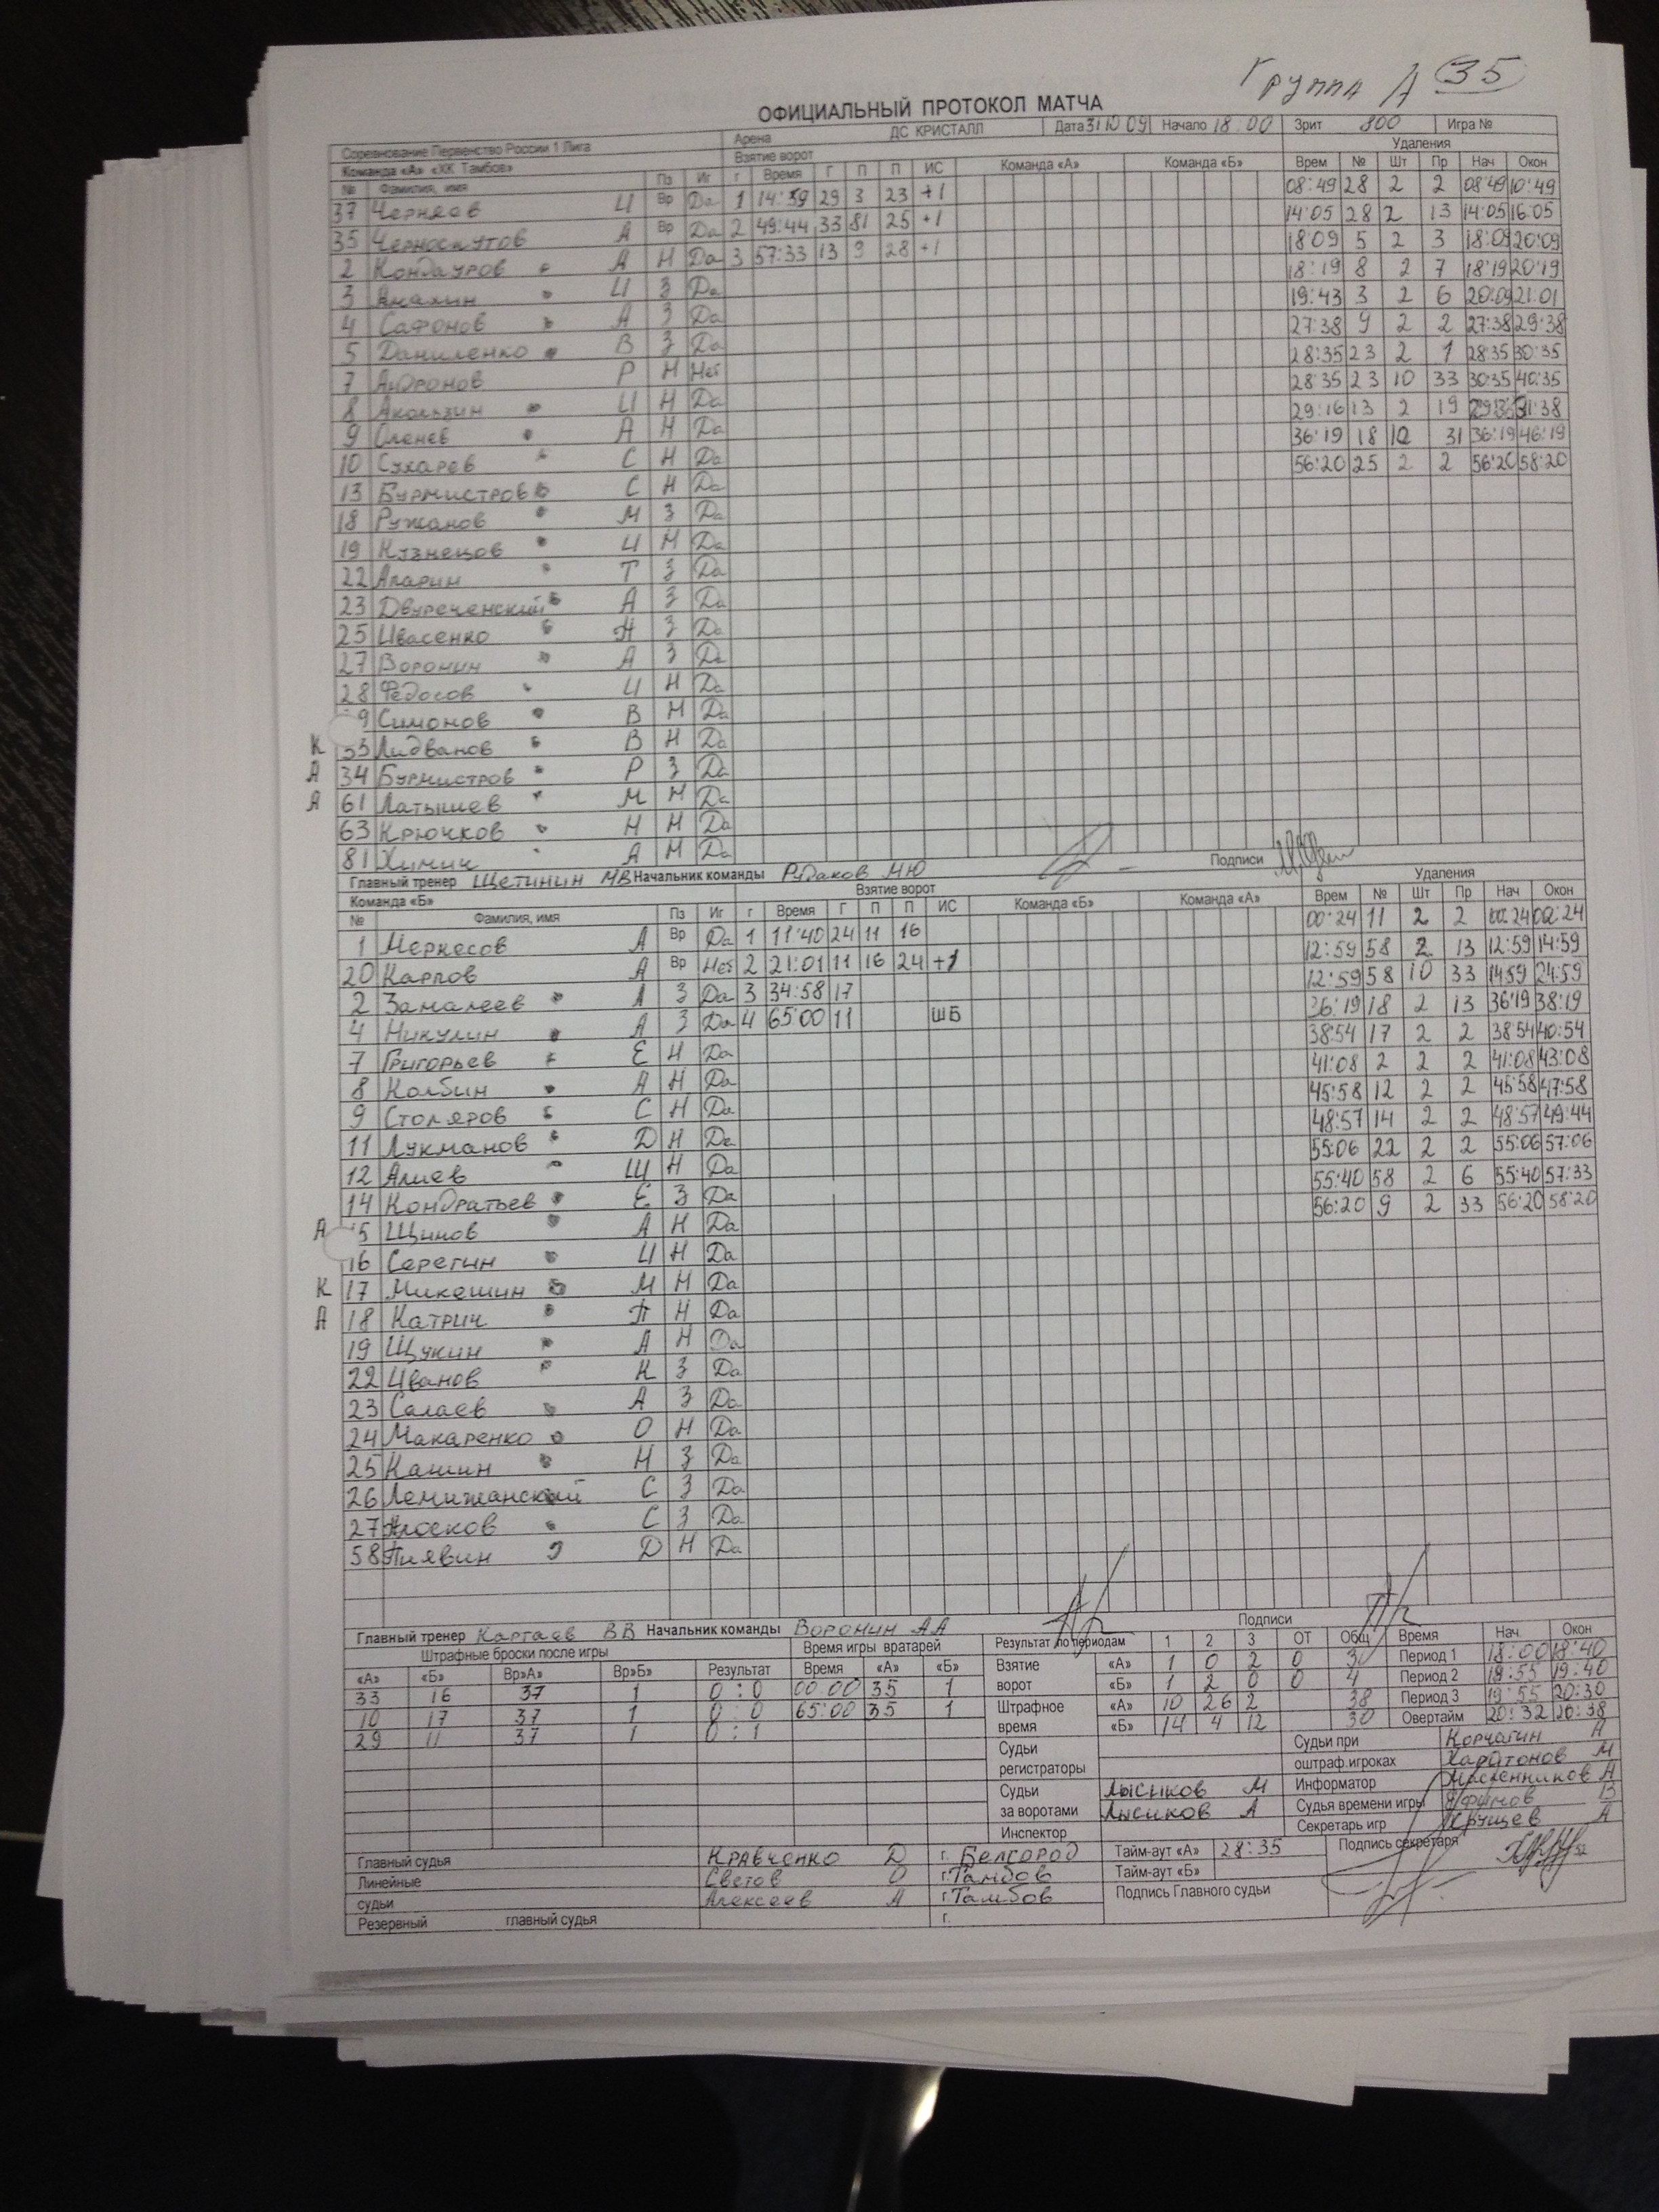 Группа А 35
ОФИЦИАЛЬНЫЙ ПРОТОКОЛ МАТЧА
Соревнование Первенство России 1 Лига Арена ДС КРИСТАЛЛ Дата 31 10 09 Начало 18:00 Зрит 800 Игра №
Команда «А» «ХК Тамбов» Взятие ворот Команда «А» Команда «Б» Удаления
№ Фамилия, имя Пз Иг г Время Г П П ИС Врем № Шт Пр Нач Окон
37 Черняев И Вр Да 1 14:59 29 3 23 +1 08:49 28 2 2 08:49 10:49
35 Черноскутов А Вр Да 2 49:44 33 81 25 +1 14:05 28 2 13 14:05 16:05
2 Кондауров А Н Да 3 57:33 13 9 28 +1 18:09 5 2 3 18:09 20:09
3 И З Да 18:19 8 2 7 18:19 20:19
4 Сафонов А З Да 19:43 3 2 6 20:09 21:01
5 Даниленко В З Да 27:38 9 2 2 27:38 29:38
7 Р Н Нет 28:35 23 2 1 28:35 30:35
8 Акользин И Н Да 28:35 23 10 33 30:35 40:35
9 Оленев А Н Да 29:16 13 2 19 31:38
10 Сухарев С Н Да 36:19 18 10 31 36:19 46:19
13 Бурмистров С Н Да 56:20 25 2 2 56:20 58:20
18 Ружанов М З Да
19 Кузнецов И Н Да
22 Апарин Т З Да
23 Двуреченский А З Да
25 Ивасенко Н З Да
27 Воронин А З Да
28 Федосов И Н Да
9 Симонов В Н Да
К 33 Лидванов В Н Да
А 34 Бурмистров Р З Да
А 61 Латышев М Н Да
63 Крючков Н Н Да
81 Химич А Н Да
Главный тренер Щетинин МВ Начальник команды Рудаков МЮ Подписи
Команда «Б» Взятие ворот Команда «Б» Команда «А» Удаления
№ Фамилия, имя Пз Иг г Время Г П П ИС Врем № Шт Пр Нач Окон
1 Меркесов А Вр Да 1 11:40 24 11 16 00:24 11 2 2 00:24 02:24
20 Карпов А Вр Нет 2 21:01 11 16 24 +1 12:59 58 2 13 12:59 14:59
2 Замалеев А З Да 3 34:58 17 12:59 58 10 33 14:59 24:59
4 Никулин А З Да 4 65:00 11 ШБ 36:19 18 2 13 36:19 38:19
7 Григорьев Е Н Да 38:54 17 2 2 38:54 40:54
8 Колбин А Н Да 41:08 2 2 2 41:08 43:08
9 Столяров С Н Да 45:58 12 2 2 45:58 47:58
11 Лукманов Д Н Да 48:57 14 2 2 48:57 49:44
12 Алиев Ш Н Да 55:06 22 2 2 55:06 57:06
14 Кондратьев Е З Да 55:40 58 2 6 55:40 57:33
А 15 Щинов А Н Да 56:20 9 2 33 56:20 58:20
16 Серегин И Н Да
К 17 Микешин М Н Да
А 18 Катрич П Н Да
19 Щукин А Н Да
22 Иванов К З Да
23 Салаев А З Да
24 Макаренко О Н Да
25 Кашин Н З Да
26 Лемижанский С З Да
27 Плосков С З Да
58 Пиявин Д Н Да
Главный тренер Картаев ВВ Начальник команды Воронин АА Подписи
Штрафные броски после игры Время игры вратарей Результат по периодам 1 2 3 ОТ Общ Время Нач. Окон
«А» «Б» Вр»А» Вр»Б» Результат Время «А» «Б» Взятие ворот «А» 1 0 2 0 3 Период 1 18:00 18:40
33 16 37 1 0:0 00:00 35 1 «Б» 1 2 0 0 4 Период 2 18:55 19:40
10 17 37 1 0:0 65:00 35 1 Штрафное время «А» 10 26 2 38 Период 3 19:55 20:30
29 11 37 1 0:1 «Б» 14 4 12 30 Овертайм 20:32 20:38
Судьи регистраторы Судьи при оштраф.игроках Корчагин А
Харитонов М
Судьи за воротами Лысиков М Информатор Масленников А
Лысиков А Судья времени игры В
Инспектор Секретарь игр Хрущев А
Главный судья Кравченко Д г. Белгород Тайм-аут «А» 28:35 Подпись секретаря
Линейные Светов О г. Тамбов Тайм-аут «Б»
судьи Алексеев А г. Тамбов Подпись Главного судьи
Резервный главный судья г.